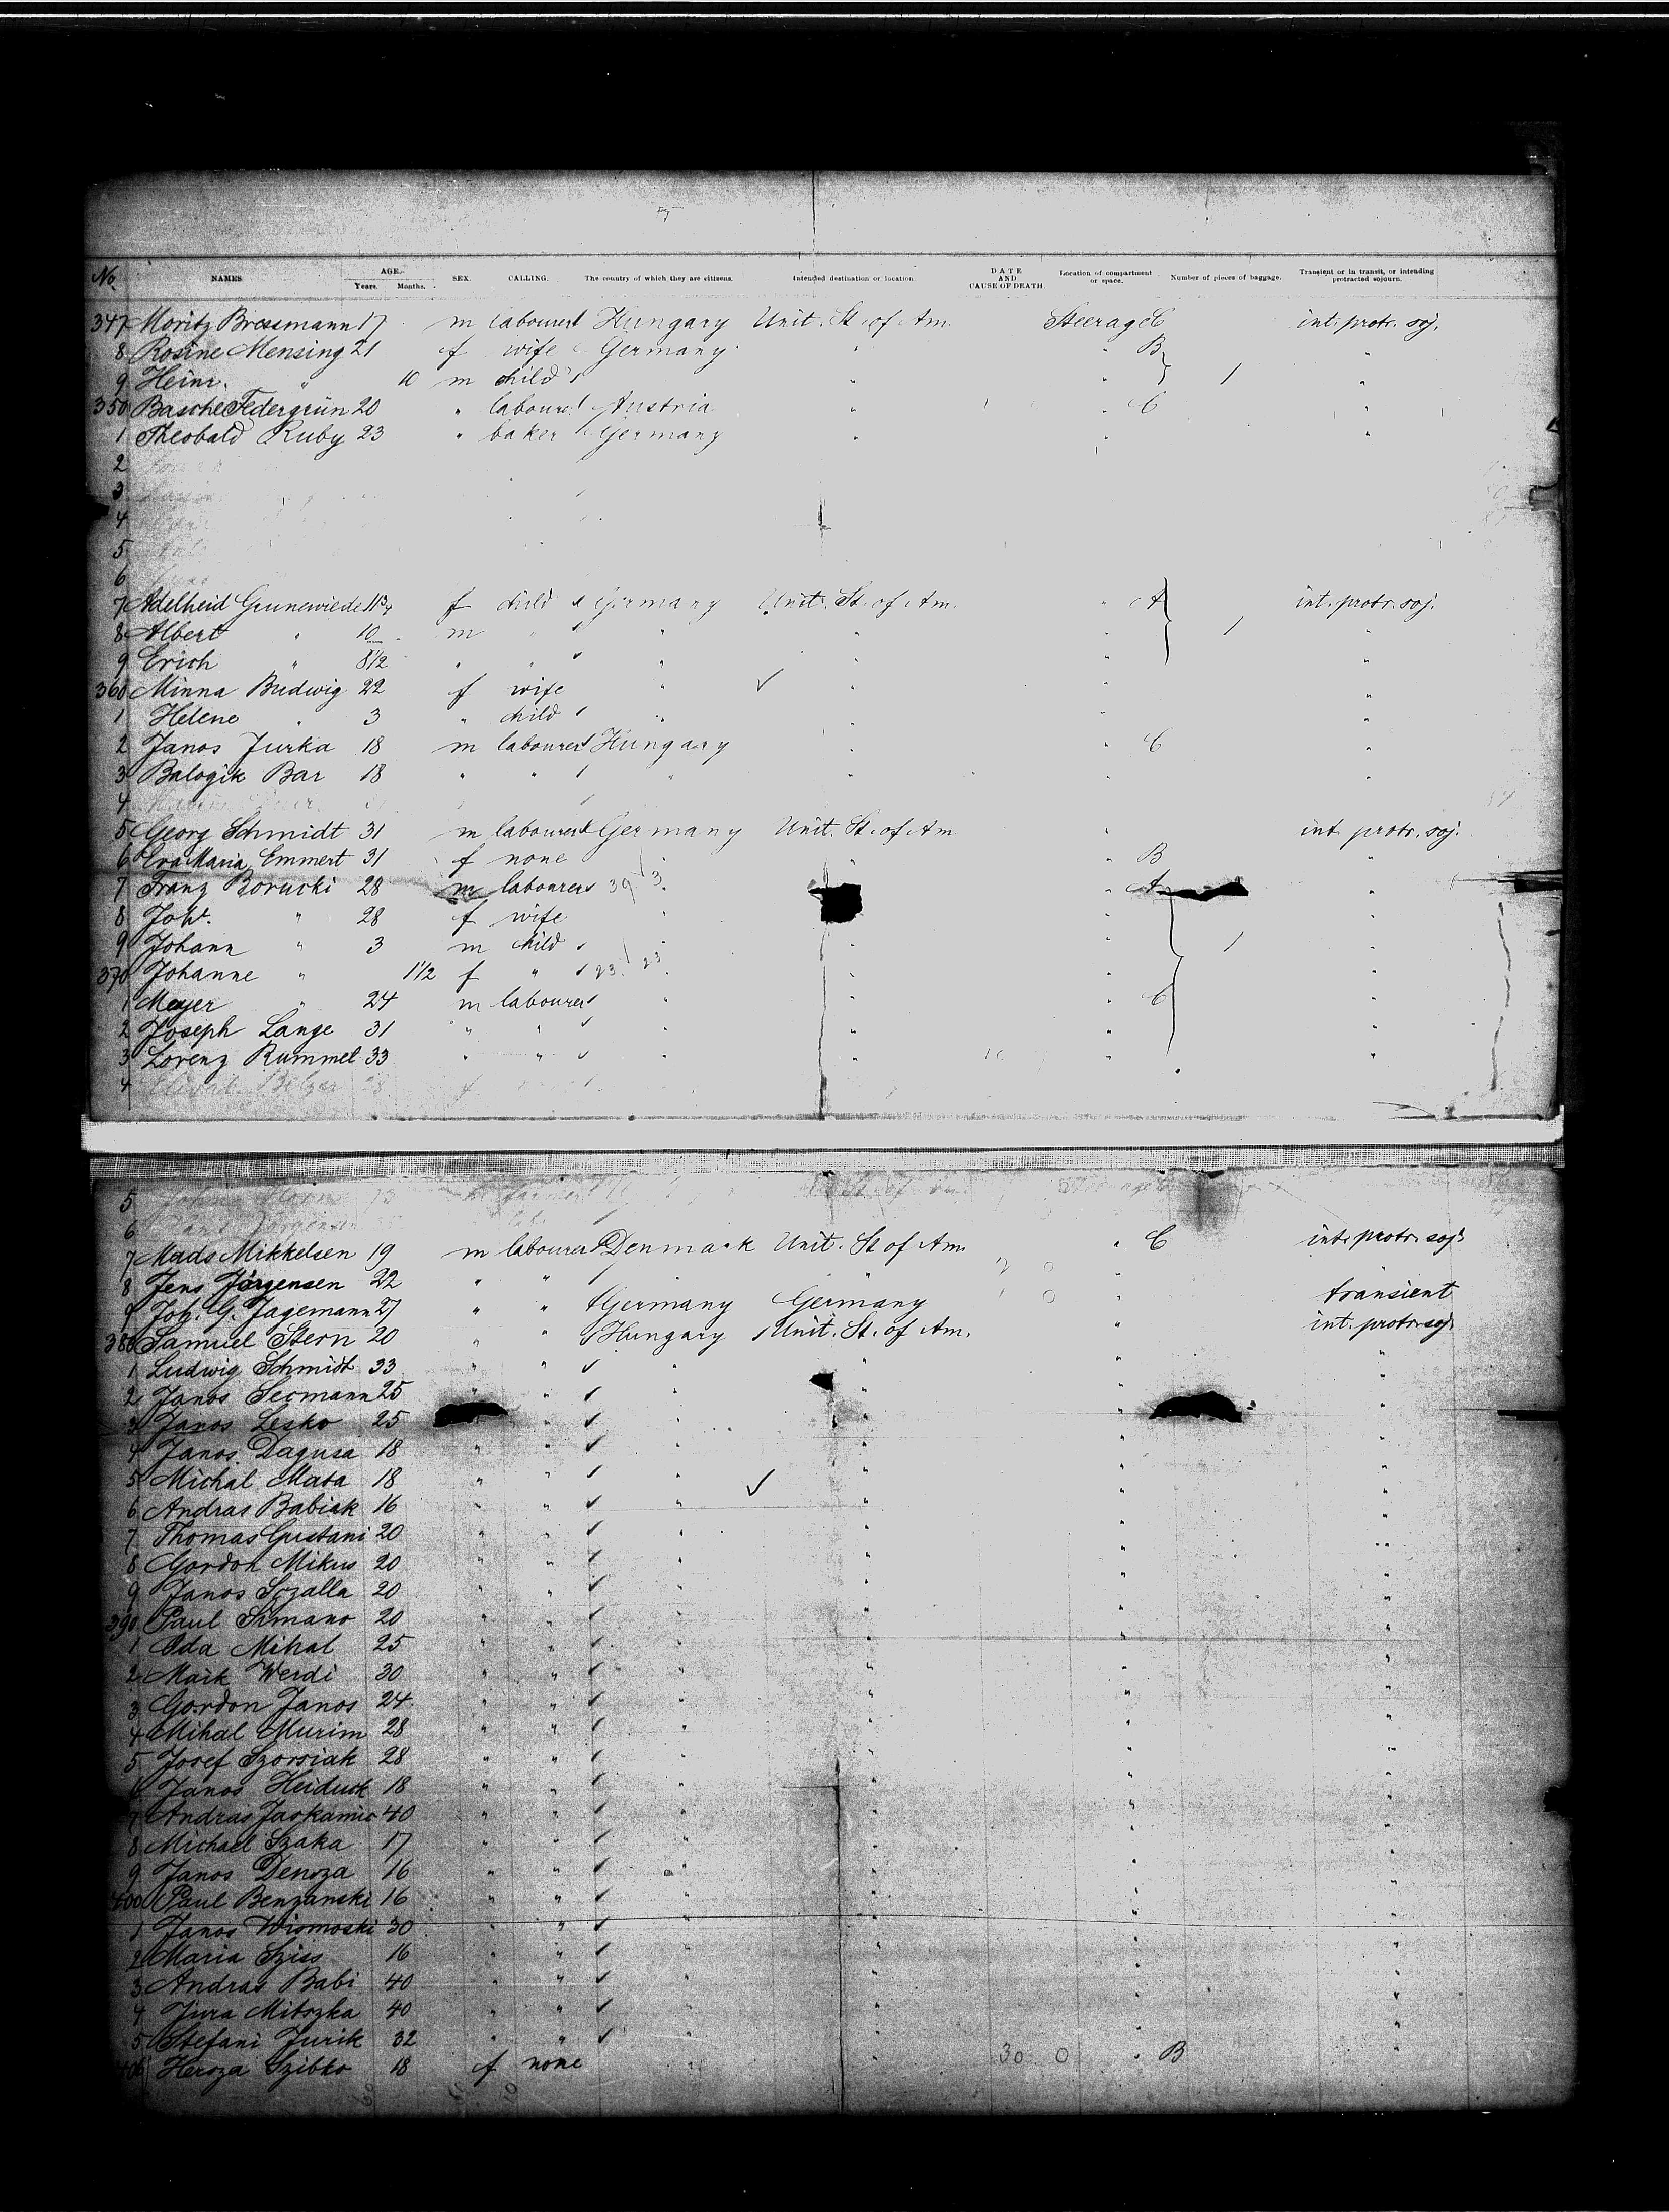 No. NAMES AGE. Years. Months. SEX. CALLING. The country of which they are citizens. Intended destination or location. DATE AND CAUSE OF DEATH. Location of compartment or space. Number of pieces of baggage. Transient or in transit, or intending protracted sojourn.
347 Moritz Bressmann 17 m labourer Hungary Unit. St. of Am. Steerage C int. protr. soj.
8 Rosine Mensing 21 f wife Germany " " B "
9 Heinr. " 10 m child " " 1 "
350 Basche Federgrün 20 " labourer Austria " " C "
1 Theobald Ruby 23 " baker Germany " " "
2
3
4
5
6
7 Adelheid Grunewiede 11 3/4 f child Germany Unit. St. of Am. " A int. protr. soj.
8 Albert " 10 m " " " " 1 "
9 Erich " 8 1/2 " " " " " "
360 Minna Budwig 22 f wife " " " "
1 Helene " 3 " child " " " "
2 Janos Jurka 18 m labourer Hungary " " C "
3 Balogik Bar 18 " " " " " "
4
5 Georg Schmidt 31 m labourer Germany Unit. St. of Am " int. protr. soj.
6 Eva Maria Emmert 31 f none " " " B "
7 Franz Borucki 28 m labourer " " A "
8 Joh. " 28 f wife " "
9 Johann " 3 m child " " " 1 "
370 Johanne " 1 1/2 f " " " " "
1 Meyer " 24 m labourer " " " C "
2 Joseph Lange 31 " " " " " "
3 Lorenz Rummel 33 " " " " " "
4 Belzer 28 f
5
6 Jörgensen
7 Mads Mikkelsen 19 m labourer Denmark Unit. St of Am. " C int. protr. soj.
8 Jens Jörgensen 22 " " " " " "
9 Joh. G. Jagemann 27 " " Germany Germany " transient
380 Samuel Stern 20 " " Hungary Unit. St. of Am. " int. protr. soj.
1 Ludwig Schmidt 33 " " " " " "
2 Janos Secmann 25 " " " " " "
3 Janos Lesko 25 " " " " "
4 Janos Dagusa 18 " " " " " "
5 Michal Mata 18 " " " " " "
6 Andras Babiak 16 " " " " " "
7 Thomas Gustani 20 " " " " " "
8 Gordon Mikus 20 " " " " " "
9 Janos Sczalla 20 " " " " " "
390 Paul Simano 20 " " " " " "
1 Oda Mihal 25 " " " " " "
2 Maik Werdi 30 " " " " " "
3 Gordon Janos 24 " " " " " "
4 Mihal Murim 28 " " " " " "
5 Josef Szorsiak 28 " " " " " "
6 Janos Heiduck 18 " " " " " "
7 Andras Jaskamic 40 " " " " " "
8 Michael Szaka 17 " " " " " "
9 Janos Denoza 16 " " " " " "
400 Paul Benzanski 16 " " " " " "
1 Janos Wismoski 30 " " " " " "
2 Maria Sziss 16 " " " " " "
3 Andras Babi 40 " " " " " "
4 Jura Mitszka 40 " " " " " "
5 Stefani Jurik 32 " " " " " "
406 Heroza Szibko 18 f none " " 30 0 " B "